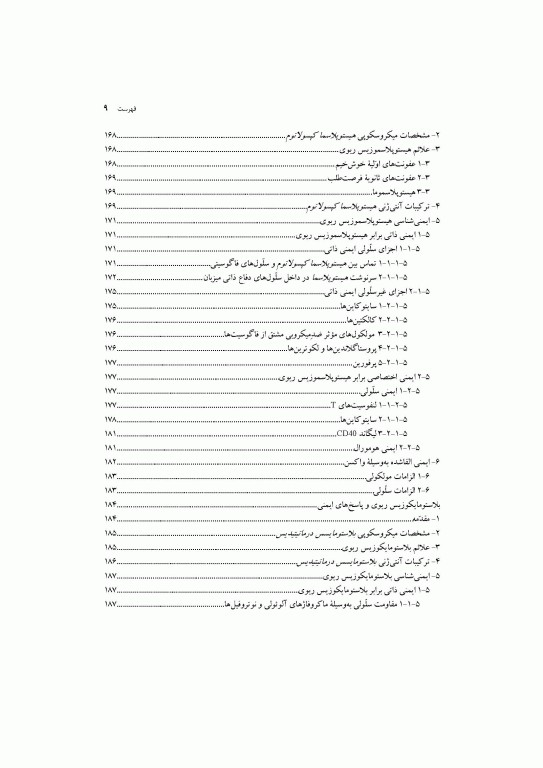 فهرست ۹
۲- مشخصات میکروسکوپی هیستوپلاسما کپسولاتوم ۱۶۸
۳- علائم هیستوپلاسموزیس ریوی ۱۶۸
۳-۱ عفونت‌های اوّلیهٔ خوش‌خیم ۱۶۸
۳-۲ عفونت‌های ثانویهٔ فرصت‌طلب ۱۶۹
۳-۳ هیستوپلاسموما ۱۶۹
۴- ترکیبات آنتی‌ژنی هیستوپلاسما کپسولاتوم ۱۶۹
۵- ایمنی‌شناسی هیستوپلاسموزیس ریوی ۱۷۱
۵-۱ ایمنی ذاتی برابر هیستوپلاسموزیس ریوی ۱۷۱
۵-۱-۱ اجزای سلّولی ایمنی ذاتی ۱۷۱
۵-۱-۱-۱ تماس بین هیستوپلاسما کپسولاتوم و سلّول‌های فاگوسیتی ۱۷۱
۵-۱-۱-۲ سرنوشت هیستوپلاسما در داخل سلّول‌های دفاع ذاتی میزبان ۱۷۲
۵-۱-۲ اجزای غیرسلّولی ایمنی ذاتی ۱۷۵
۵-۱-۲-۱ سایتوکاین‌ها ۱۷۵
۵-۱-۲-۲ کالکتین‌ها ۱۷۶
۵-۱-۲-۳ مولکول‌های مؤثر ضدمیکروبی مشتق از فاگوسیت‌ها ۱۷۶
۵-۱-۲-۴ پروستاگلاندین‌ها و لکوترین‌ها ۱۷۶
۵-۱-۲-۵ پرفورین ۱۷۷
۵-۲ ایمنی اختصاصی برابر هیستوپلاسموزیس ریوی ۱۷۷
۵-۲-۱ ایمنی سلّولی ۱۷۷
۵-۲-۱-۱ لنفوسیت‌های T ۱۷۷
۵-۲-۱-۲ سایتوکاین‌ها ۱۷۸
۵-۲-۱-۳ لیگاند CD40 ۱۸۱
۵-۲-۲ ایمنی هومورال ۱۸۱
۶- ایمنی القاشده به‌وسیلهٔ واکسن ۱۸۲
۶-۱ الزامات مولکولی ۱۸۳
۶-۲ الزامات سلّولی ۱۸۳
بلاستومایکوزیس ریوی و پاسخ‌های ایمنی ۱۸۴
۱- مقدّمه ۱۸۴
۲- مشخصات میکروسکوپی بلاستومایسس درماتیتیدیس ۱۸۵
۳- علائم بلاستومایکوزیس ریوی ۱۸۵
۴- ترکیبات آنتی‌ژنی بلاستومایسس درماتیتیدیس ۱۸۶
۵- ایمنی‌شناسی بلاستومایکوزیس ریوی ۱۸۷
۵-۱ ایمنی ذاتی برابر بلاستومایکوزیس ریوی ۱۸۷
۵-۱-۱ مقاومت سلّولی به‌وسیلهٔ ماکروفاژهای آلوئولی و نوتروفیل‌ها ۱۸۷